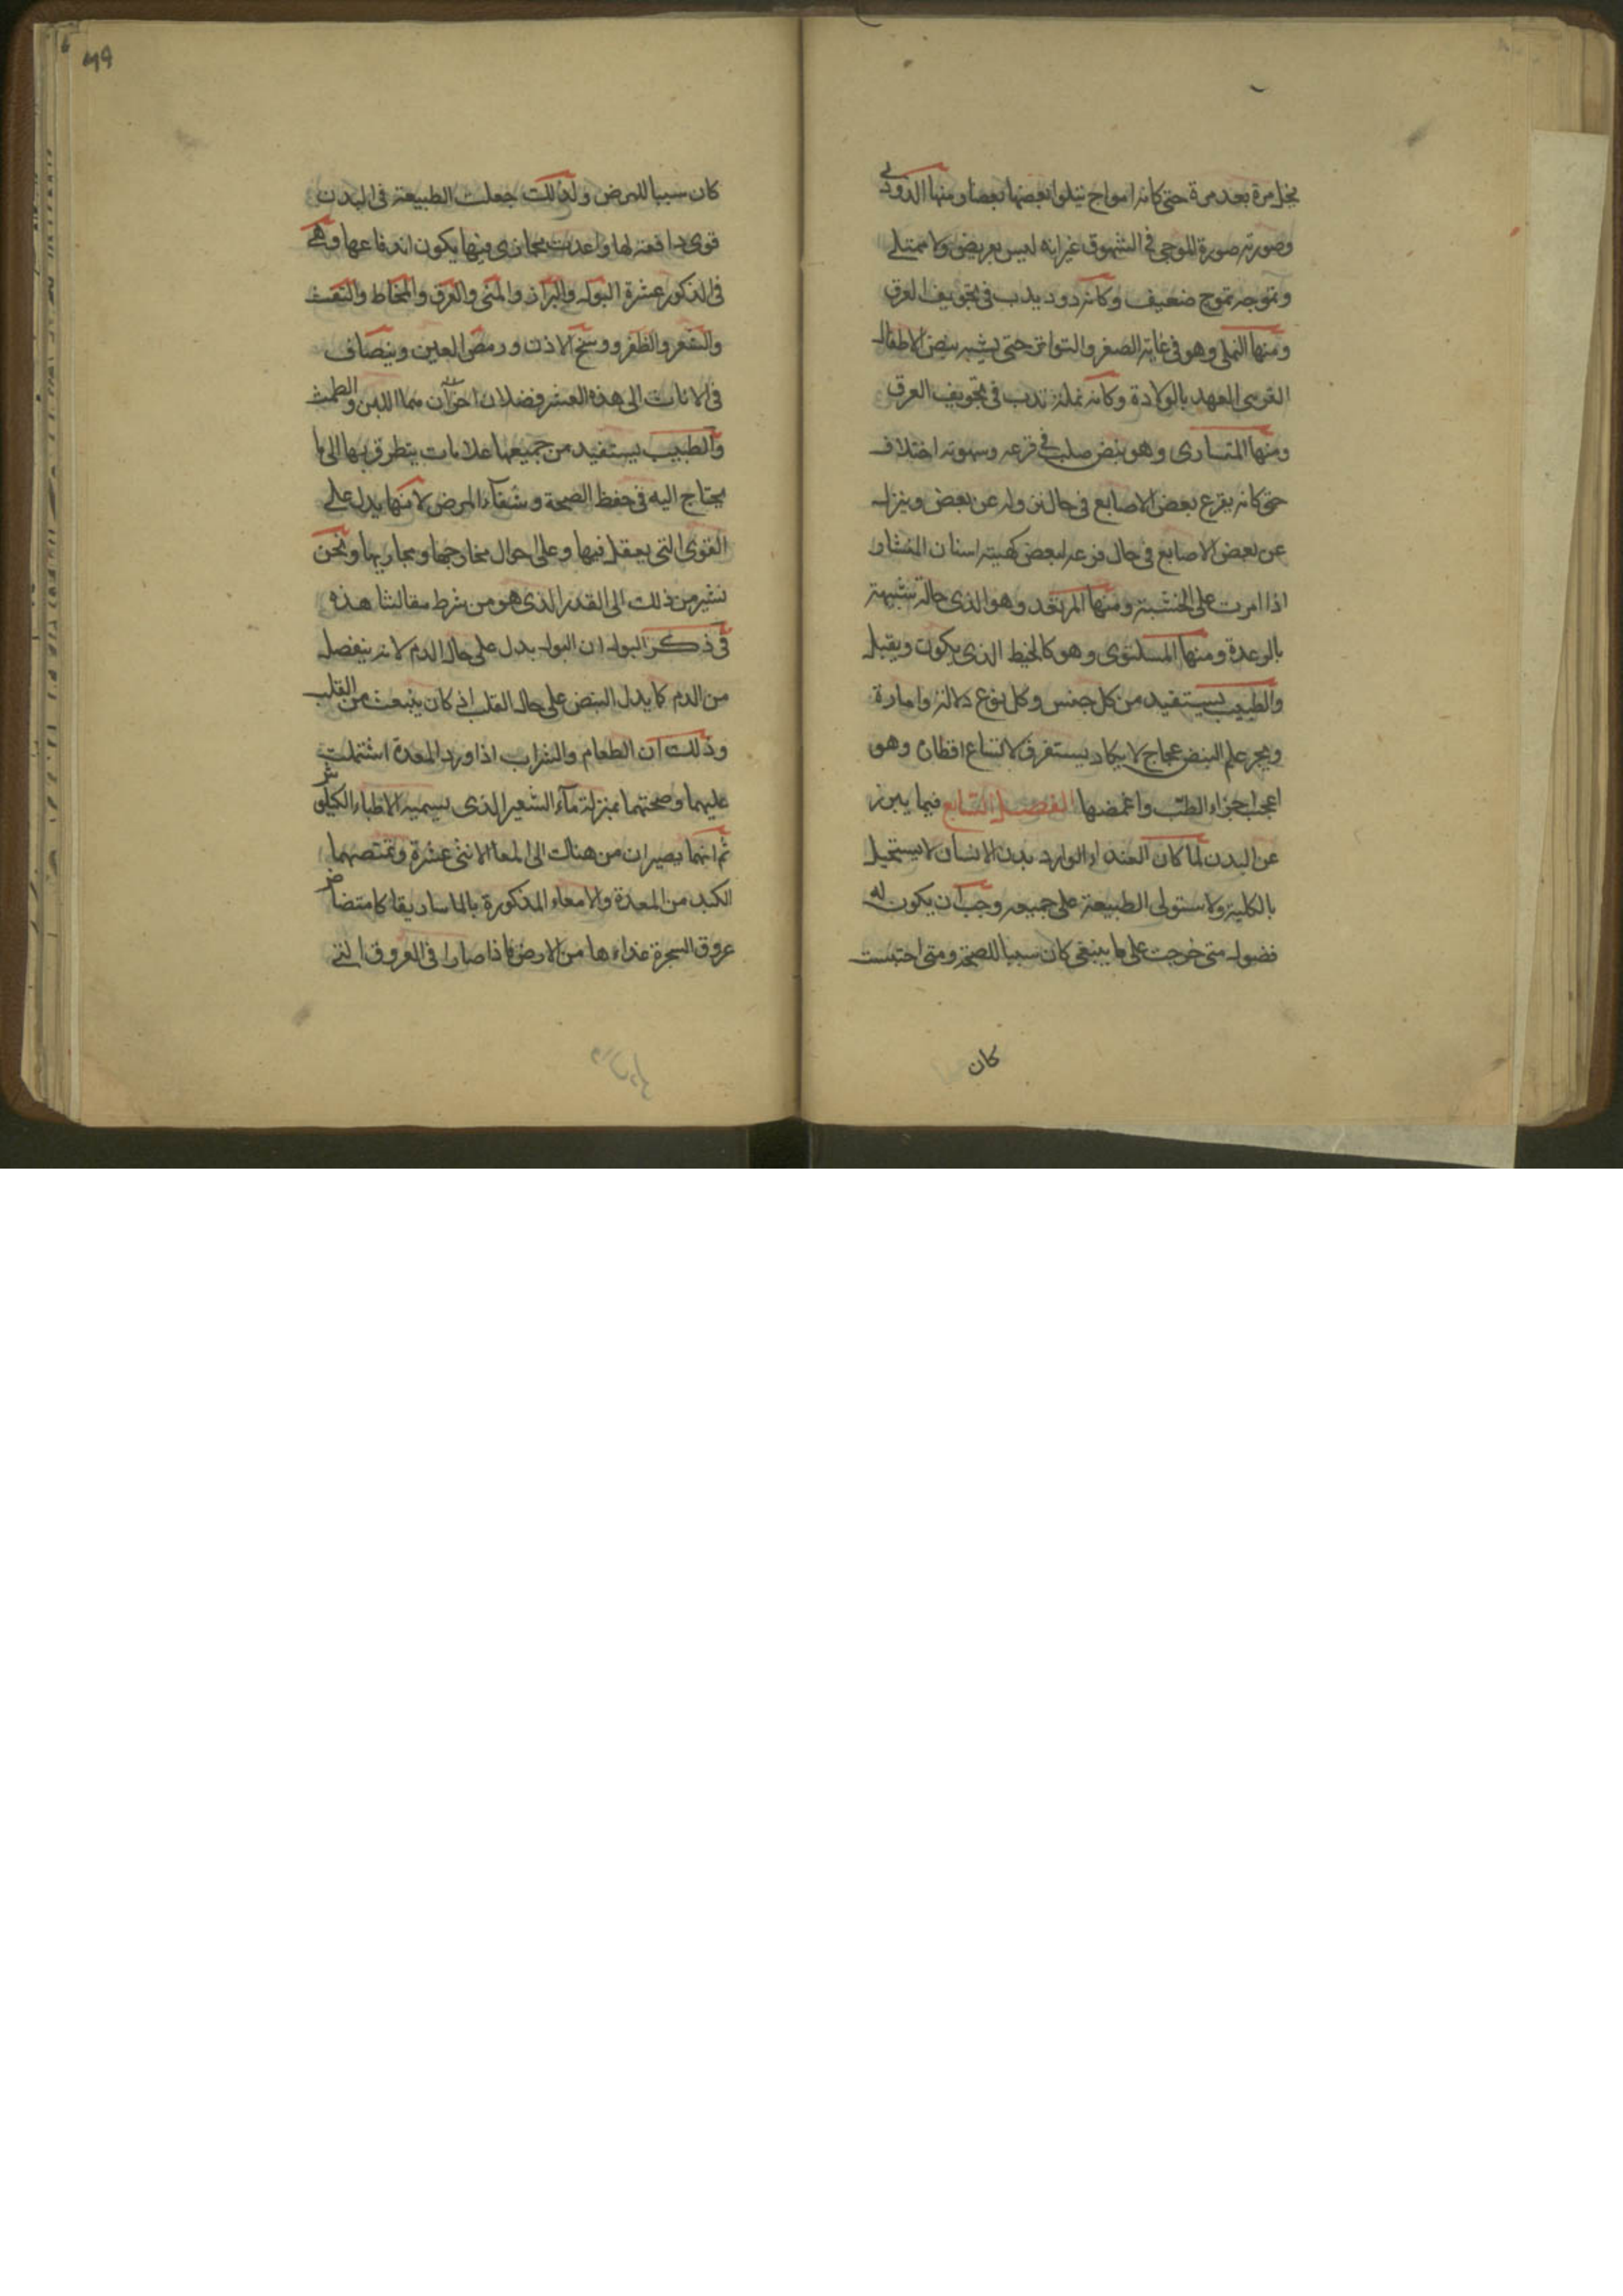 يخل مرة بعد مرة حتى كانه امواج تيلوا بعضها بعضا ومنها الدودي
وصورته صورة الموجي في الشهوق غير انه ليس بعريض ولا ممتلي
وتموجه تموج ضعيف وكانه دود يدب في تجويف العرق
ومنها النملي وهو في غاية الصغر والتواتر حتى يشبه نبض الاطفال
القربى العهد بالولادة وكانه نملة تدب في تجويف العرق
ومنها المنشارى وهو نبض صلب في قرعه وسهوته اختلاف
حتى كانه يقرع بعض الاصابع في حال نزوله عن بعض وينزل
عن بعض الاصابع في حال قرعه لبعض كهيئة اسنان المنشار
اذا امرت على الخشبة ومنها المرتعد وهو الذى حالة شبيهة
بالرعدة ومنها المسلتوى وهو كالخيط الذى يكون ويقبل
والطبيب يستفيد من كل جنس وكل نوع دلالة وامارة
وبحر علم النبض عجاج لا يكاد يستغرق لاتساع اقطاره وهو
اعجب اجزاء الطب واغمضها الفصل السابع فيما يبرز
عن البدن لما كان الغذاء الوارد بدن الانسان لا يستحيل
بالكلية ولا ستولى الطبيعة على جميعه وجب ان يكون له
فضول متى خرجت على ما ينبغى كان سببا للصحة ومتى احتبست
كان
٤٩
كان سببا للمرض ولذلك جعلت الطبيعة في البدن
قوى دافعة لها واعدت مجارى فيها يكون اندفاعها وهي
في الذكور عشرة البول والبراز والمنى والعرق والمخاط والنفث
والشعر والظفر ووسخ الاذن ورمص العين وينضاف
في الاناث الى هذه العشر فضلان اخران هما اللبن والطمث
والطبيب يستفيد من جميعها علامات يتطرق بها الى ما
يحتاج اليه في حفظ الصحة وشفاء المرض لانها يدل على
القوى التى يعقل فيها وعلى احوال مخارجها ومجاريها ونحن
نشير من ذلك الى القدر الذى هو من شرط مقالتنا هذه
في ذكر البول ان البول يدل على حال الدم لانه ينفصل
من الدم كما يدل النبض على حال القلب اذ كان ينبعث من القلب
وذلك ان الطعام والشراب اذا ورد المعدة اشتملت
عليهما وصحتهما بمنزلة ماء الشعير الذى يسميه الاطباء الكيلوس
ثم انهما يصيران من هناك الى المعا الاثنى عشرة وتمتصهما
الكبد من المعدة والامعاء المذكورة بالماساريقا كامتضاض
عروق الشجرة غذاءها من الارض فاذا صارا في العروق التي